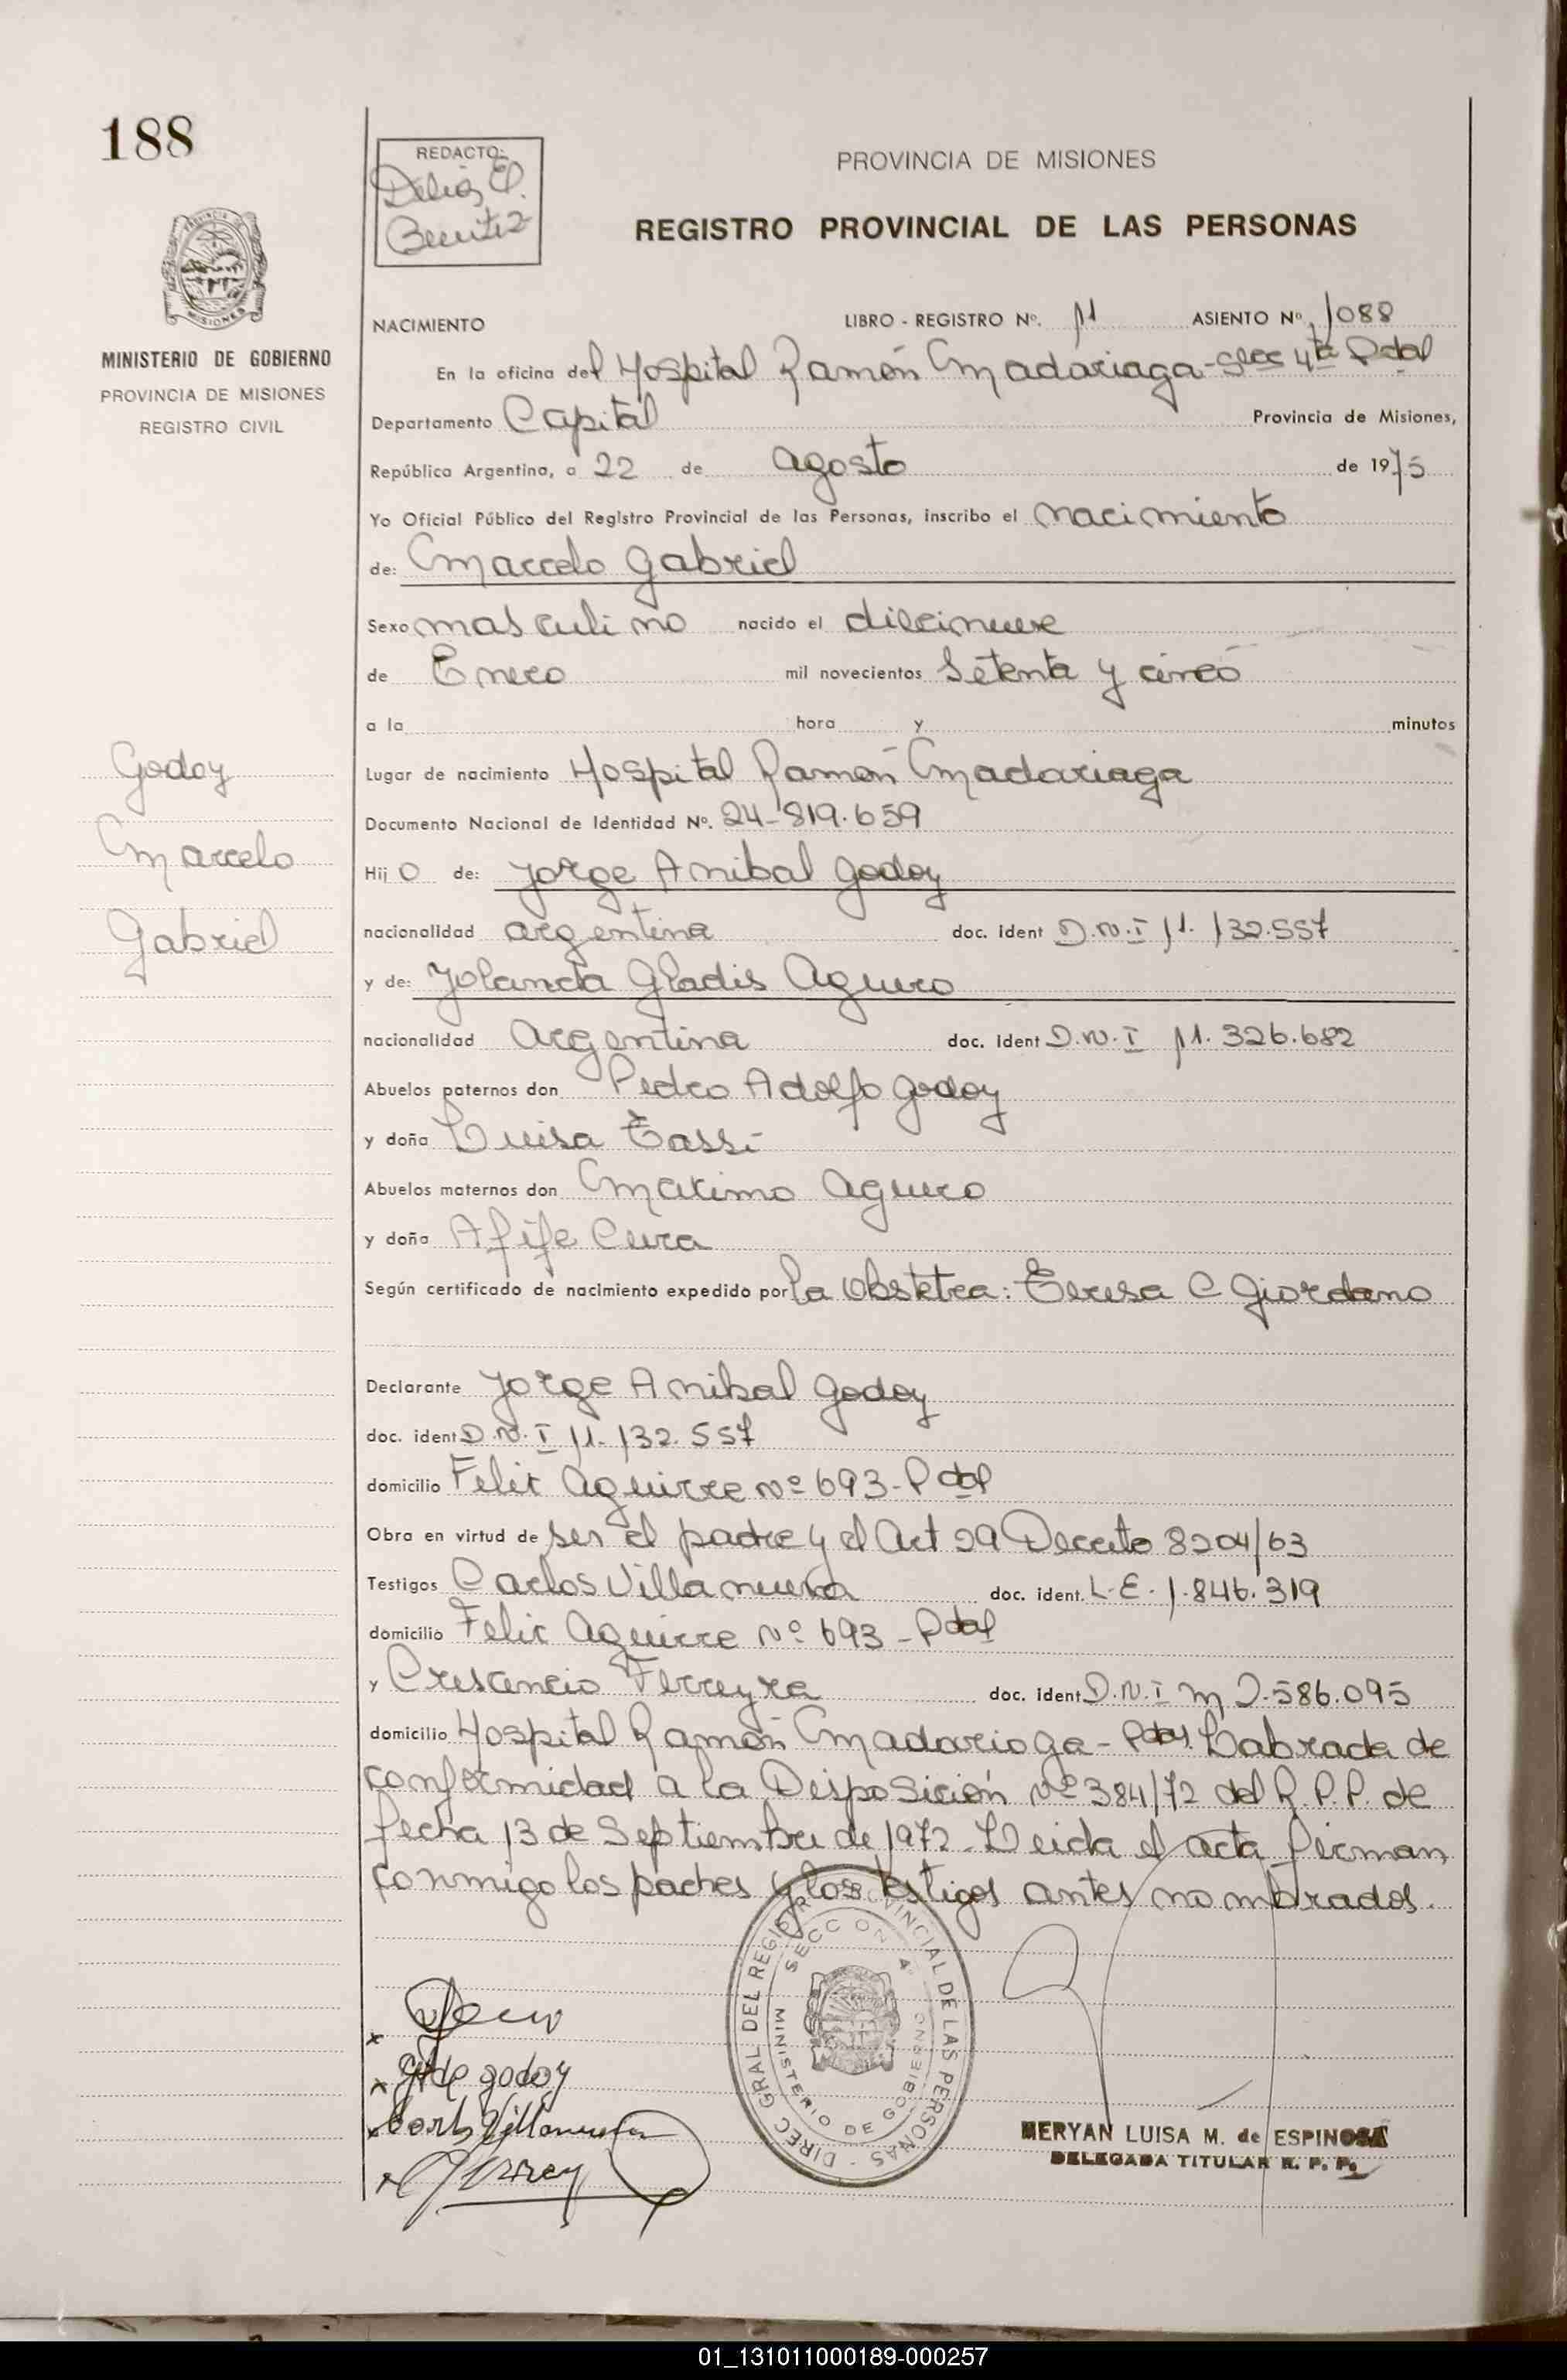 188
REDACTO:
Delia E.
Benitez
PROVINCIA DE MISIONES
REGISTRO PROVINCIAL DE LAS PERSONAS
MISIONES
MINISTERIO DE GOBIERNO
PROVINCIA DE MISIONES
REGISTRO CIVIL
NACIMIENTO LIBRO - REGISTRO Nº. 11 ASIENTO Nº 1088
En la oficina del Hospital Ramón Madariaga - Secc 4ta Pdas
Departamento Capital Provincia de Misiones,
República Argentina, a 22 de agosto de 1975
Yo Oficial Público del Registro Provincial de las Personas, inscribo el nacimiento
de: Marcelo Gabriel
Sexo masculino nacido el diecinueve
de Enero mil novecientos setenta y cinco
a la hora y minutos
Godoy
Marcelo
Gabriel
Lugar de nacimiento Hospital Ramón Madariaga
Documento Nacional de Identidad Nº. 24-819.659
Hijo de: Jorge Anibal Godoy
nacionalidad argentina doc. ident D.N.I 11.132.557
y de: Yolanda Gladis Aguero
nacionalidad Argentina doc. ident D.N.I 11.326.682
Abuelos paternos don Pedro Adolfo Godoy
y doña Luisa Tassi
Abuelos maternos don Maximo Aguero
y doña Afife Cura
Según certificado de nacimiento expedido por la Obstetra: Teresa C Giordano
Declarante Jorge Anibal Godoy
doc. ident D.N.I 11.132.557
domicilio Felix Aguirre Nº 693 - Pdas
Obra en virtud de ser el padre y el Art 29 Decreto 8204/63
Testigos Carlos Villanueva doc. ident. L.E. 1.846.319
domicilio Felix Aguirre Nº 693 - Pdas
y Crescencio Ferreyra doc. ident D.N.I M 2.586.095
domicilio Hospital Ramón Madariaga - Pdas. Labrada de
conformidad a la Disposición Nº 384/72 del R.P.P. de
fecha 13 de Septiembre de 1972. Leida el acta firman
conmigo los padres y los testigos antes nombrados.
DIREC GRAL DEL REGISTRO PROVINCIAL DE LAS PERSONAS
SECCION 4ª
MINISTERIO DE GOBIERNO
de godoy
Carlos Villanueva
MERYAN LUISA M. de ESPINOSA
DELEGADA TITULAR R. P. P.
01_131011000189-000257